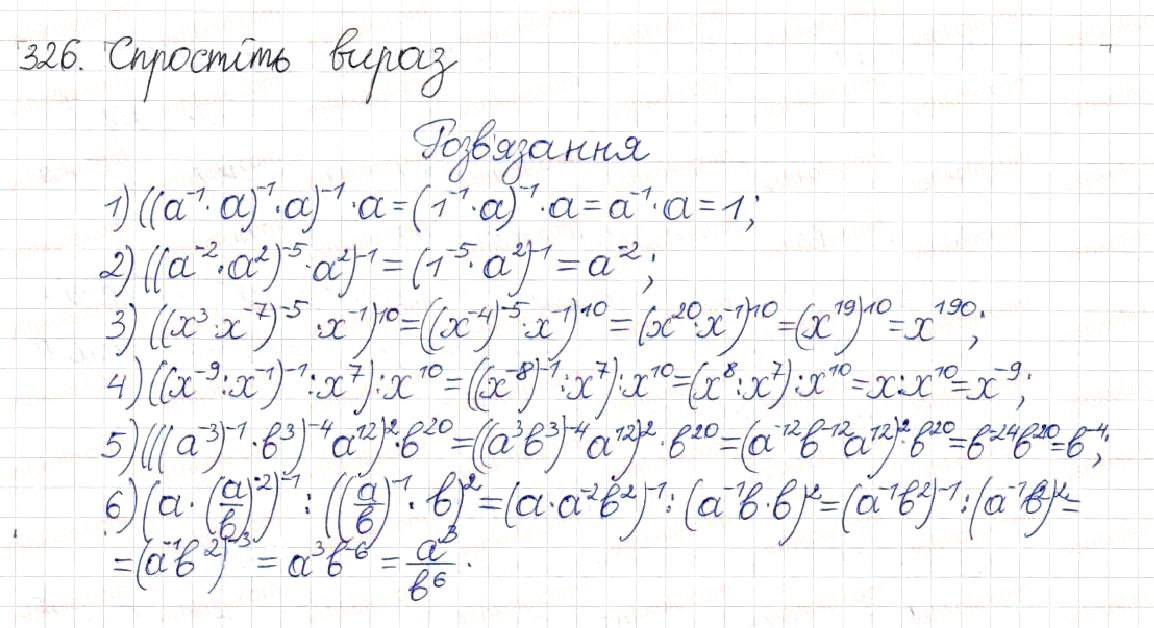 326. Спростіть вираз
Розв'язання
1) ((a⁻¹·a)⁻¹·a)⁻¹·a=(1⁻¹·a)⁻¹·a=a⁻¹·a=1;
2) ((a⁻²·a²)⁻⁵·a²)⁻¹=(1⁻⁵·a²)⁻¹=a⁻²;
3) ((x³·x⁻⁷)⁻⁵·x⁻¹)¹⁰=((x⁻⁴)⁻⁵·x⁻¹)¹⁰=(x²⁰·x⁻¹)¹⁰=(x¹⁹)¹⁰=x¹⁹⁰;
4) ((x⁻⁹:x⁻¹)⁻¹:x⁷):x¹⁰=((x⁻⁸)⁻¹:x⁷):x¹⁰=(x⁸:x⁷):x¹⁰=x:x¹⁰=x⁻⁹;
5) (((a⁻³)⁻¹·b³)⁻⁴a¹²)²·b²⁰=((a³b³)⁻⁴a¹²)²·b²⁰=(a⁻¹²b⁻¹²a¹²)²·b²⁰=b⁻²⁴b²⁰=b⁻⁴;
6) (a·(a/b)⁻²)⁻¹:((a/b)⁻¹·b)²=(a·a⁻²b²)⁻¹:(a⁻¹b·b)²=(a⁻¹b²)⁻¹:(a⁻¹b²)²=
=(a⁻¹b²)⁻³=a³b⁻⁶=a³/b⁶.